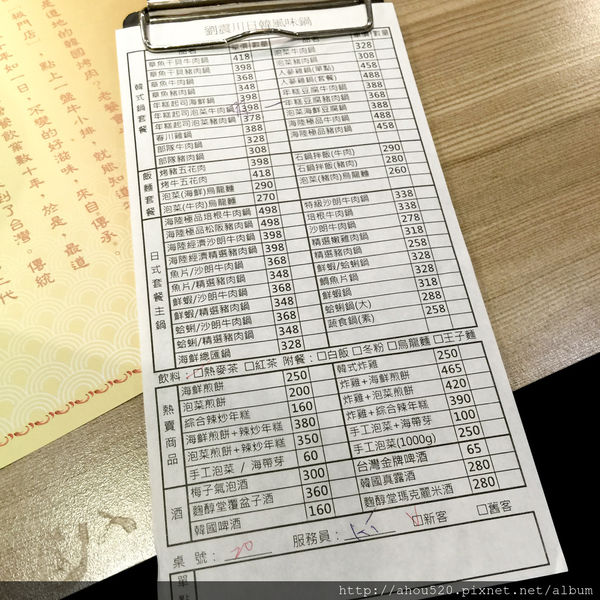 劉震川日韓風味鍋
品名 單價 數量 品名 單價 數量
韓式鍋套餐
章魚干貝牛肉鍋 418
章魚干貝豬肉鍋 398
章魚牛肉鍋 368
章魚豬肉鍋 348
年糕起司海鮮鍋 398
年糕起司泡菜牛肉鍋 398
年糕起司泡菜豬肉鍋 378
春川雞鍋 388
部隊牛肉鍋 328
部隊豬肉鍋 308
泡菜牛肉鍋 328
泡菜豬肉鍋 308
人蔘雞鍋(單點) 458
人蔘雞鍋(套餐) 488
年糕豆腐牛肉鍋 388
年糕豆腐豬肉鍋 368
泡菜海鮮豆腐鍋 388
海陸極品牛肉鍋 488
海陸極品豬肉鍋 458
飯麵套餐
烤豬五花肉 398
烤牛五花肉 418
泡菜(海鮮)烏龍麵 290
泡菜(牛肉)烏龍麵 270
石鍋拌飯(牛肉) 290
石鍋拌飯(豬肉) 280
泡菜(豬肉)烏龍麵 260
日式套餐主鍋
海陸極品培根牛肉鍋 498
海陸極品松阪豬肉鍋 498
海陸經濟沙朗牛肉鍋 398
海陸經濟精選豬肉鍋 398
魚片/沙朗牛肉鍋 368
魚片/精選豬肉鍋 348
鮮蝦/沙朗牛肉鍋 368
鮮蝦/精選豬肉鍋 348
蛤蜊/沙朗牛肉鍋 368
蛤蜊/精選豬肉鍋 348
海鮮總匯鍋 328
特級沙朗牛肉鍋 338
培根牛肉鍋 338
沙朗牛肉鍋 278
精選嫩雞肉鍋 318
精選豬肉鍋 258
鮮蝦/蛤蜊鍋 328
鯛魚片鍋 328
鮮蝦鍋 318
蛤蜊鍋(大) 288
蔬食鍋(素) 258
飲料:□熱麥茶 □紅茶 附餐:□白飯 □冬粉 □烏龍麵 □王子麵
熱賣商品
海鮮煎餅 250
泡菜煎餅 200
綜合辣炒年糕 160
海鮮煎餅+辣炒年糕 380
泡菜煎餅+辣炒年糕 350
手工泡菜 / 海帶芽 60
韓式炸雞 250
炸雞+海鮮煎餅 465
炸雞+泡菜煎餅 420
炸雞+綜合辣年糕 390
手工泡菜+海帶芽 100
手工泡菜(1000g) 250
酒
梅子氣泡酒 300
麴醇堂覆盆子酒 360
韓國啤酒 160
台灣金牌啤酒 65
韓國真露酒 280
麴醇堂瑪克麗米酒 280
桌號: 20 服務員: Ki □新客 □舊客
單點
http://ahou520.pixnet.net/album